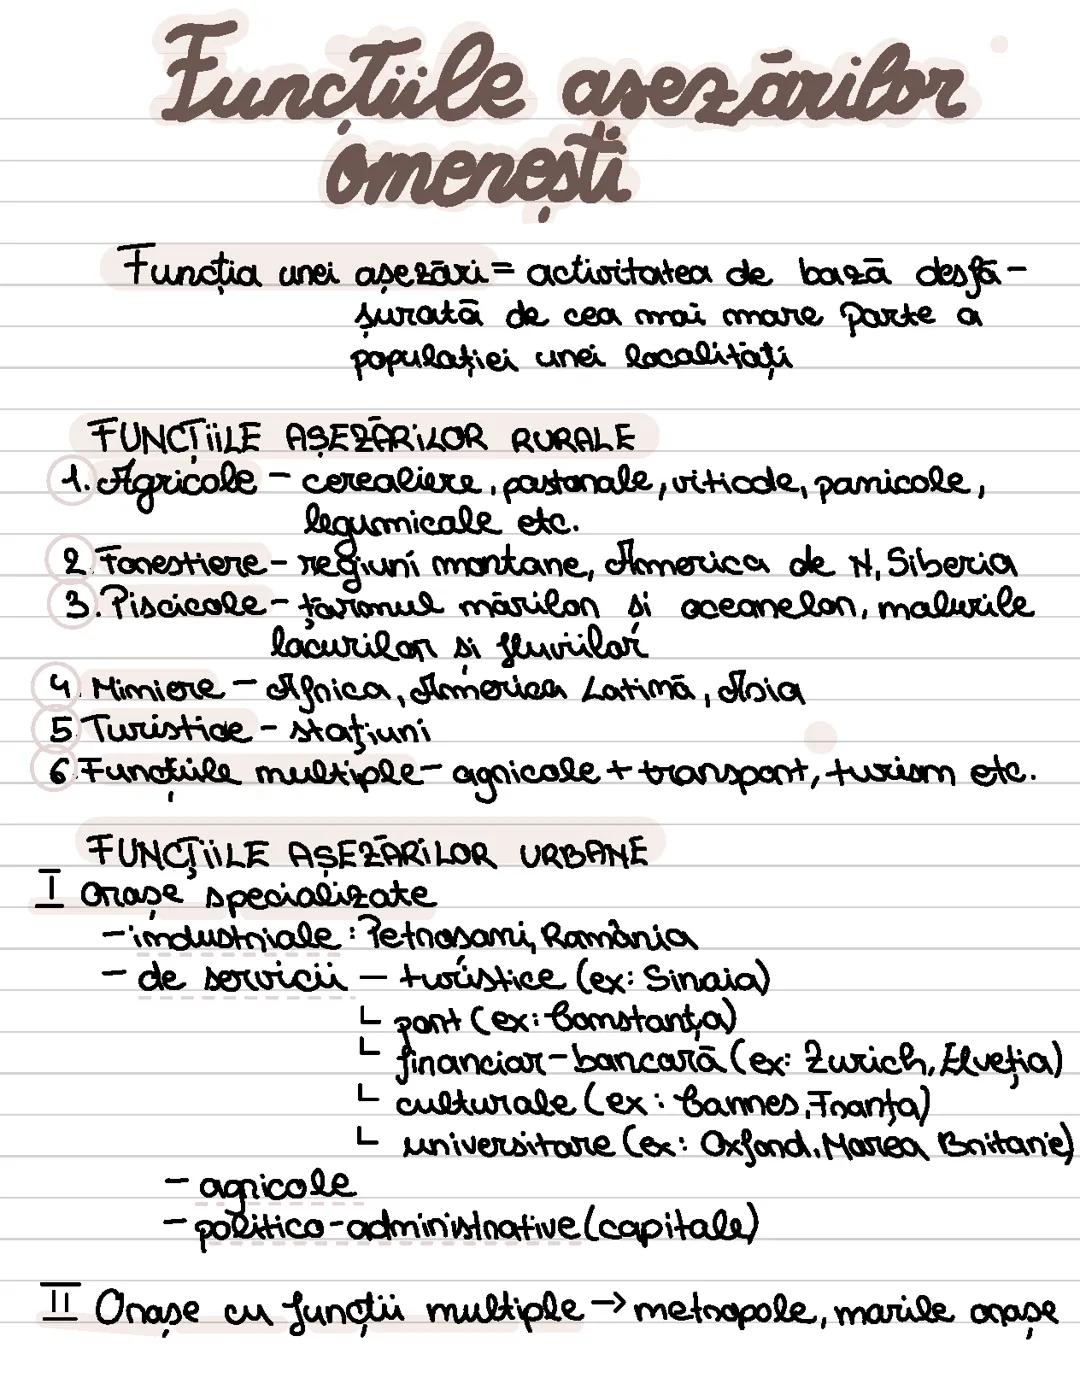 Funcțiile așezărilor
omenești
Funcția unei așezări = activitatea de bază desfă-
șurată de cea mai mare parte a
populației unei localități
FUNCȚIILE AȘEZĂRILOR RURALE
1. Agricole - cerealiere, pastorale, viticole, pomicole,
legumicole etc.
2. Forestiere - regiuni montane, America de N, Siberia
3. Piscicole - țărmul mărilor și oceanelor, malurile
lacurilor și fluviilor
4. Miniere - Africa, America Latină, Asia
5. Turistice - stațiuni
6. Funcțiile multiple - agricole + transport, turism etc.
FUNCȚIILE AȘEZĂRILOR URBANE
I Orașe specializate
- industriale : Petroșani, România
- de servicii - turistice (ex: Sinaia)
port (ex: Constanța)
financiar-bancară (ex: Zurich, Elveția)
culturale (ex: Cannes, Franța)
universitare (ex: Oxford, Marea Britanie)
- agricole
- politico-administrative (capitale)
II Orașe cu funcții multiple → metropole, marile orașe